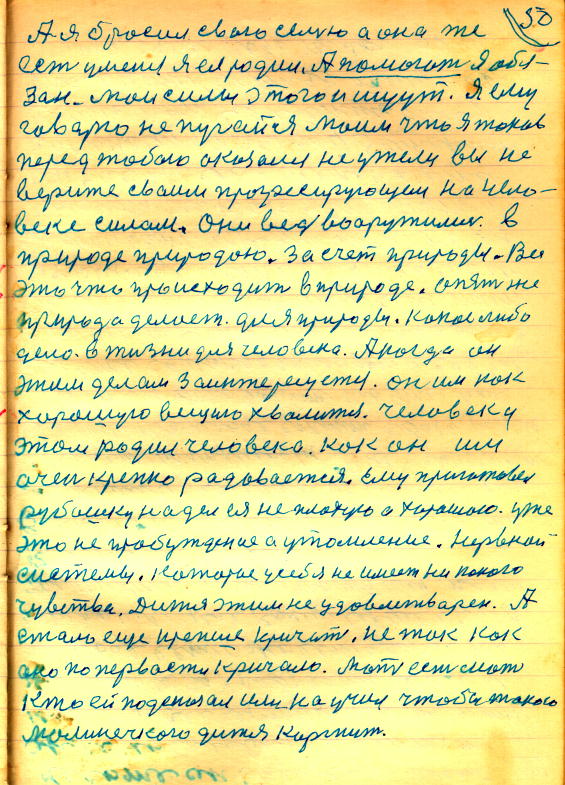 50
А я бросил свого семю а она же
ест умения я ея родил. А помогат я обя-
зан. мои силы этого ищут. Я ему
говарю не пугайся моим что я таков
перед тобою оказался неужели вы не
верите своим прогресирующем на чело-
веке силам. Они вед вооружилис. в
природе природою. За счет природы. Вся
это что происходит в природе. опят же
природа делает. для природы. какое либо
дело. в жизни для человека. А когда он
этим делам заинтересуется. он им как
хорошую вещию хвалится. человек у
этом родил человека. как он им
очен крепко радывается. ему приготовил
рубашку надел ея не плохую а хорошою. уже
это не пробуждение а утомление. Нервной
системы. Которые усебя не имеет ни какого
чувства. Дитя этим не удовлетварен. А
стало еще крепше кричат. не так как
оно по первости кричало. мат ест мат
Кто ей подсказал или научил чтобы такого
малинечкого дитя кормит.